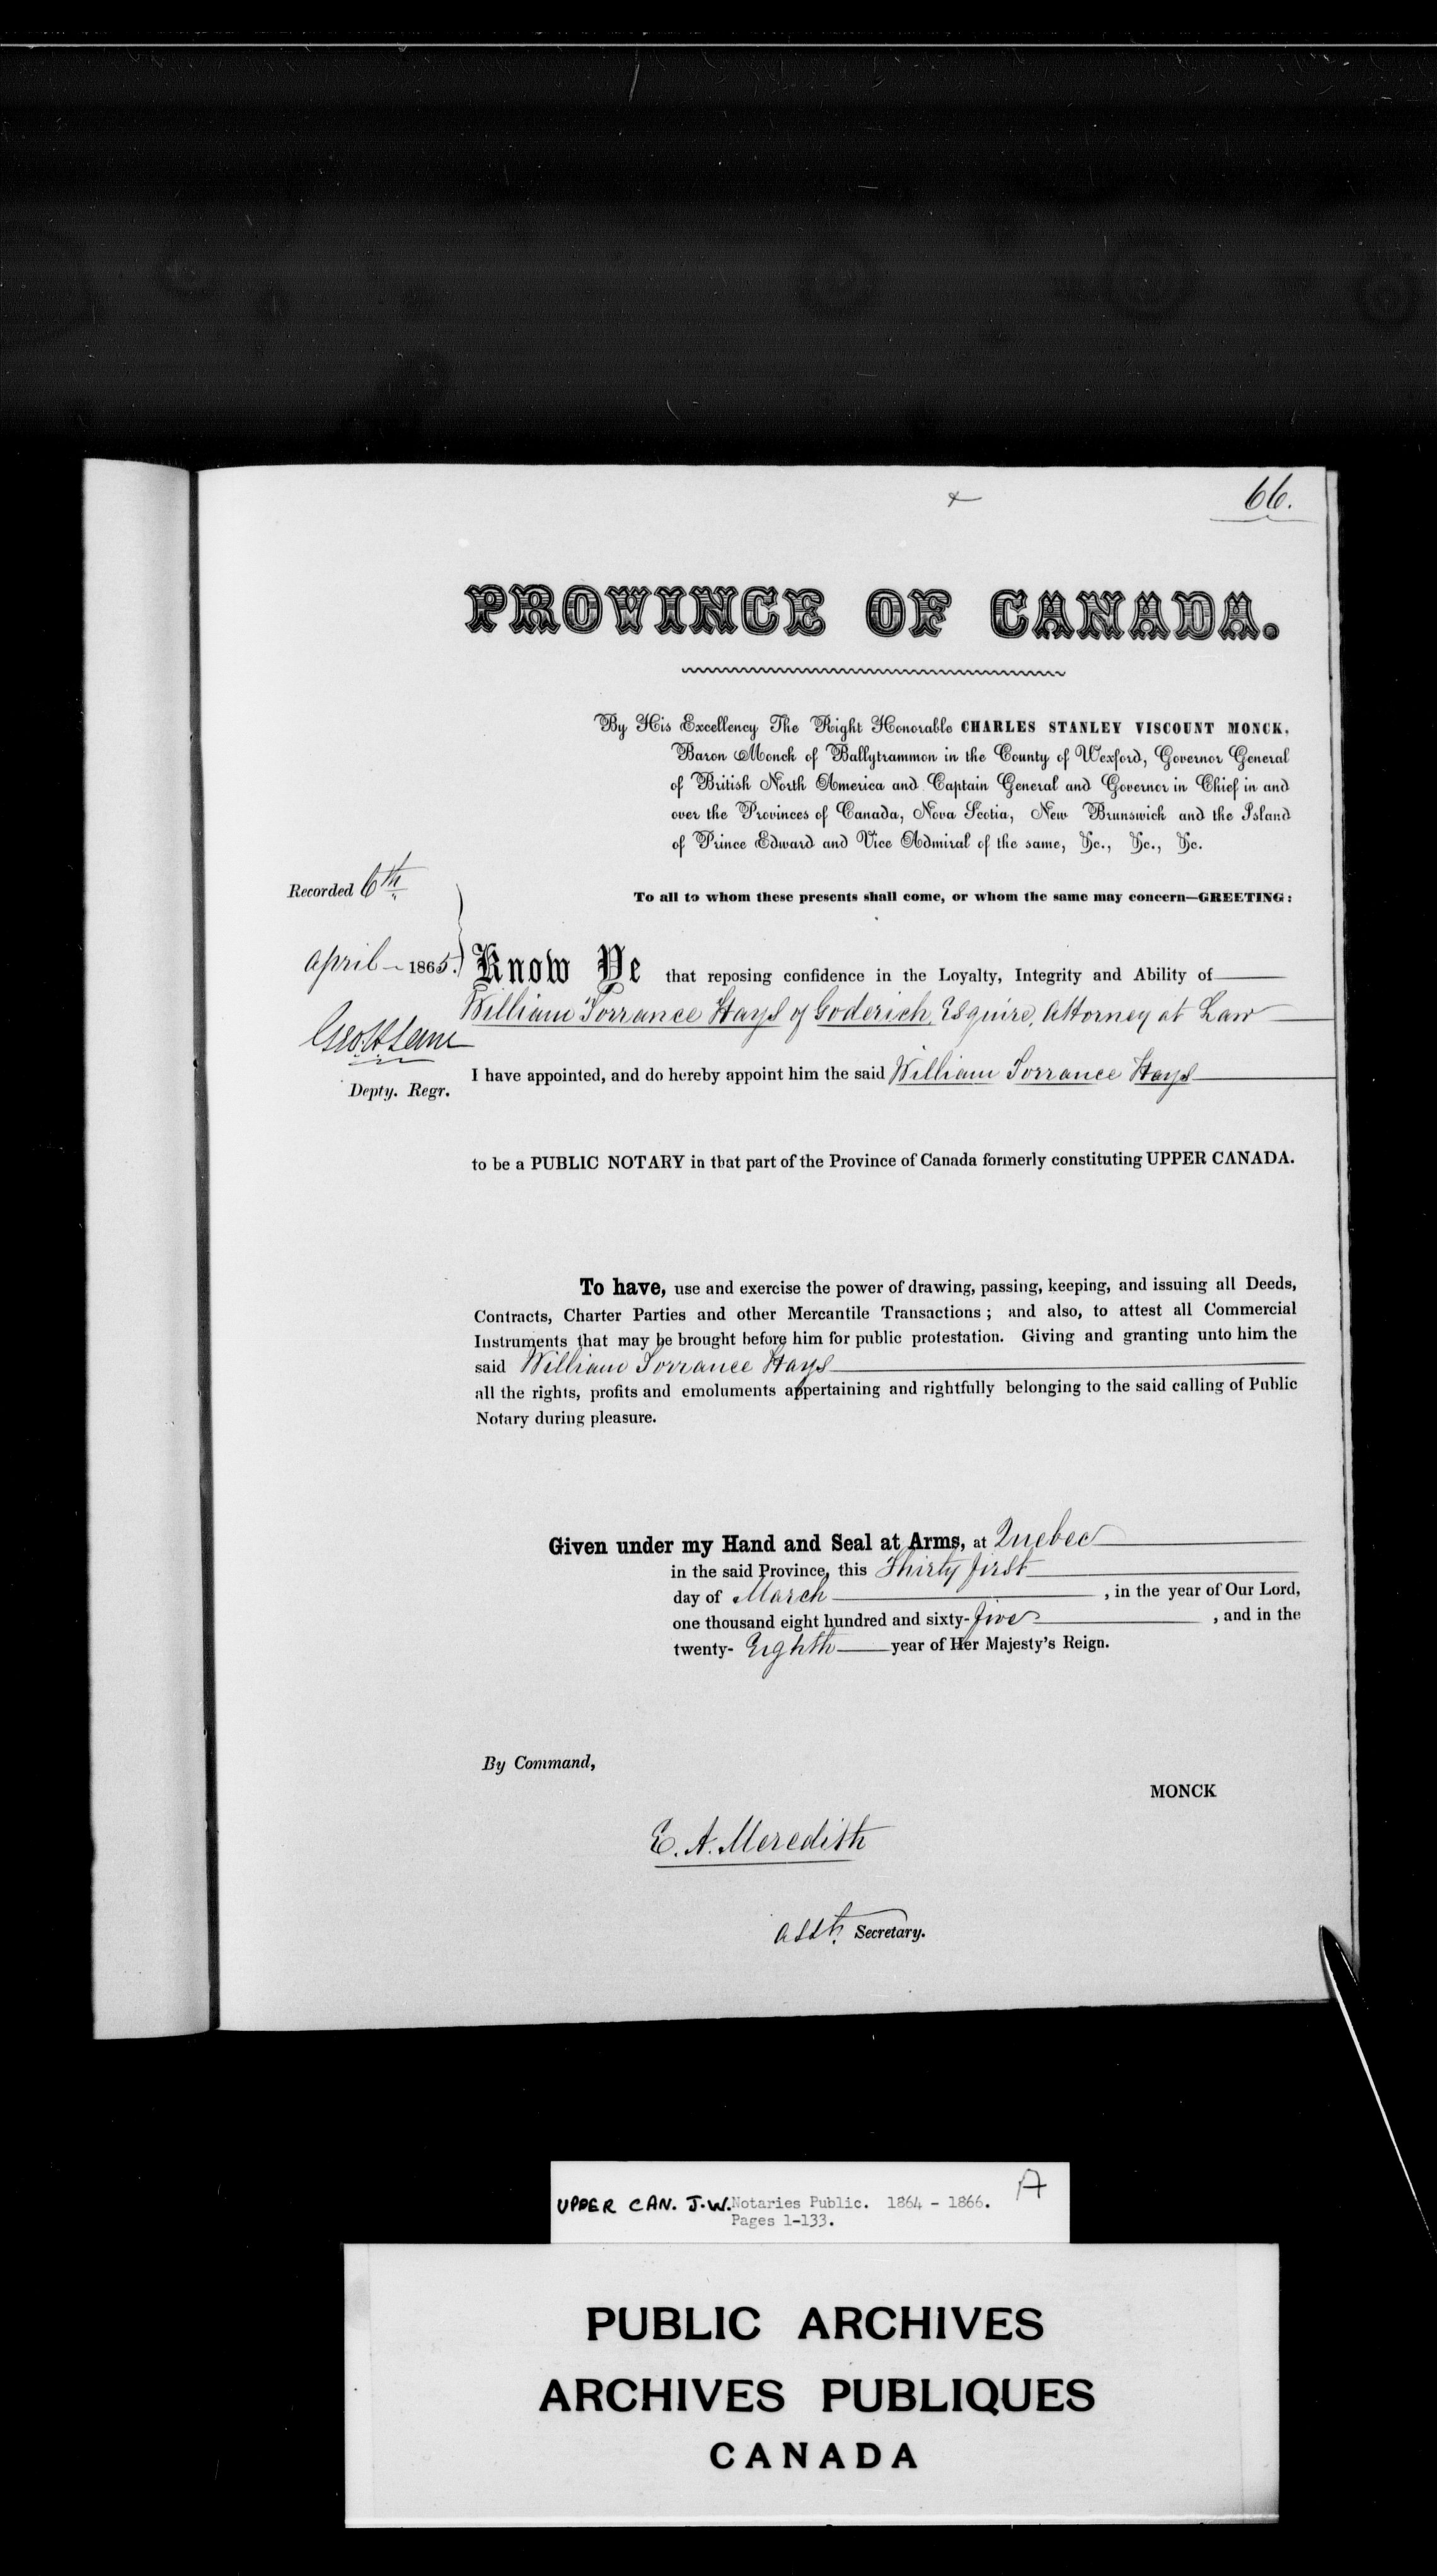 66.
PROVINCE OF CANADA.
By His Excellency The Right Honorable CHARLES STANLEY VISCOUNT MONCK,
Baron Monck of Ballytrammon in the County of Wexford, Governor General
of British North America and Captain General and Governor in Chief in and
over the Provinces of Canada, Nova Scotia, New Brunswick and the Island
of Prince Edward and Vice Admiral of the same, &c., &c., &c.
Recorded 6th
April 1865.
Depty. Regr.
To all to whom these presents shall come, or whom the same may concern—GREETING:
Know Ye that reposing confidence in the Loyalty, Integrity and Ability of
William Torrance Hays of Goderich, Esquire, Attorney at Law
I have appointed, and do hereby appoint him the said William Torrance Hays
to be a PUBLIC NOTARY in that part of the Province of Canada formerly constituting UPPER CANADA.
To have, use and exercise the power of drawing, passing, keeping, and issuing all Deeds,
Contracts, Charter Parties and other Mercantile Transactions; and also, to attest all Commercial
Instruments that may be brought before him for public protestation. Giving and granting unto him the
said William Torrance Hays
all the rights, profits and emoluments appertaining and rightfully belonging to the said calling of Public
Notary during pleasure.
Given under my Hand and Seal at Arms, at Quebec
in the said Province, this Thirty first
day of March, in the year of Our Lord,
one thousand eight hundred and sixty-five, and in the
twenty-Eighth year of Her Majesty's Reign.
By Command,
MONCK
E. A. Meredith
Asst. Secretary.
A
UPPER CAN. J.W. Notaries Public. 1864 - 1866.
Pages 1-133.
PUBLIC ARCHIVES
ARCHIVES PUBLIQUES
CANADA